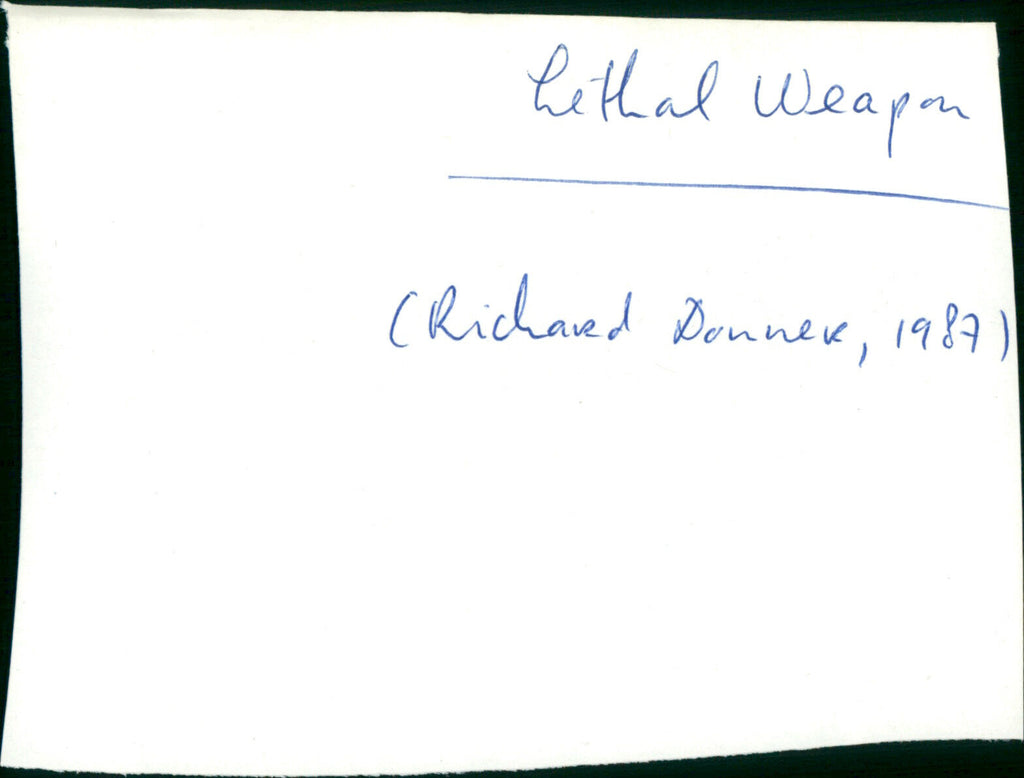 Lethal Weapon
(Richard Donner, 1987)